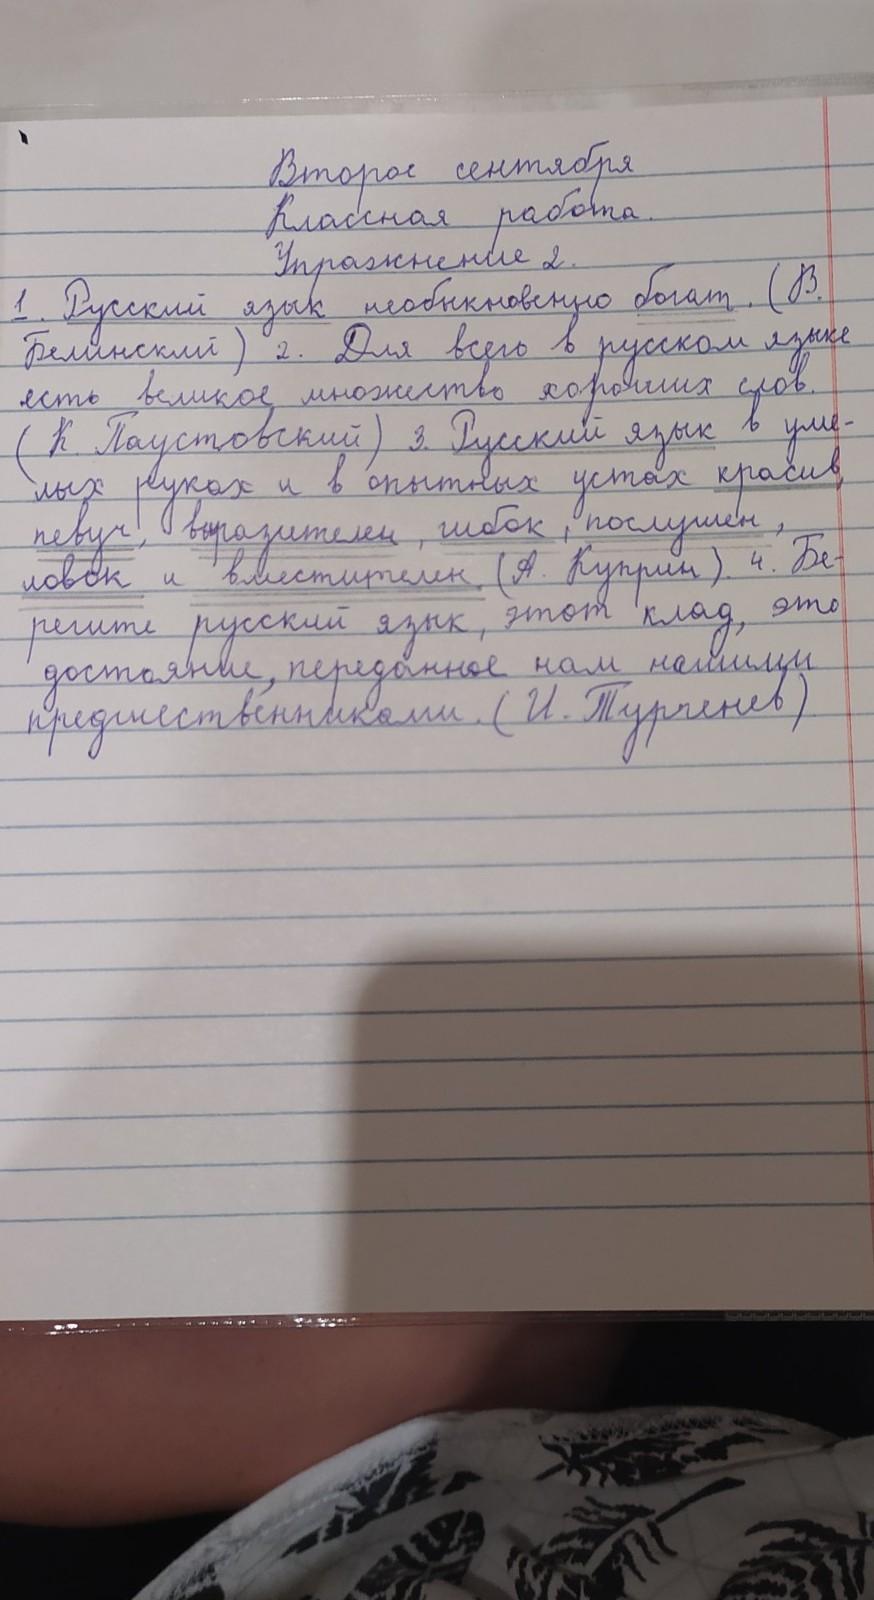 Второе сентября
Классная работа.
Упражнение 2.
1. Русский язык необыкновенно богат. (В.
Белинский) 2. Для всего в русском языке
есть великое множество хороших слов.
(К. Паустовский) 3. Русский язык в уме-
лых руках и в опытных устах красив,
певуч, выразителен, гибок, послушен,
ловок и вместителен. (А. Куприн). 4. Бе-
регите русский язык, этот клад, это
достояние, переданное нам нашими
предшественниками. (И. Тургенев)